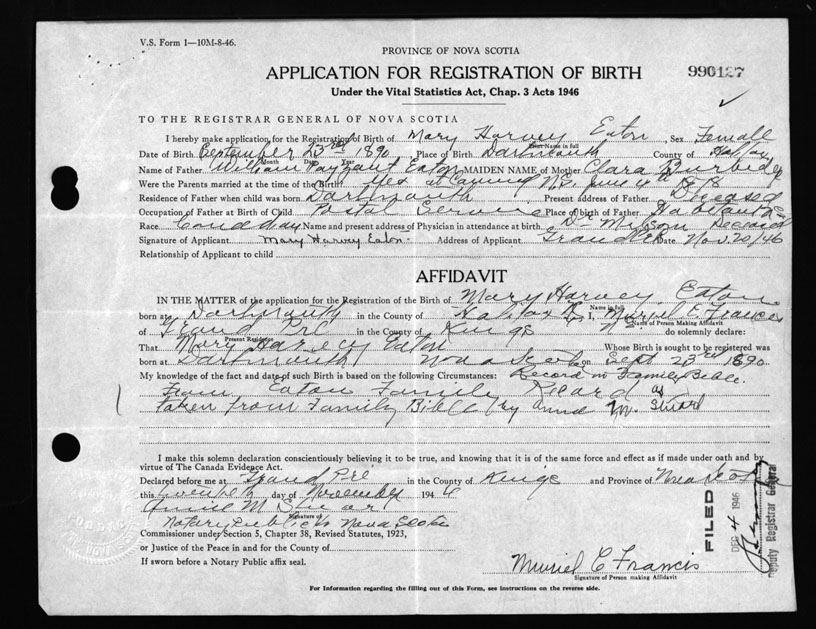 V.S. Form 1—10M-8-46.
PROVINCE OF NOVA SCOTIA
APPLICATION FOR REGISTRATION OF BIRTH
990127
Under the Vital Statistics Act, Chap. 3 Acts 1946
TO THE REGISTRAR GENERAL OF NOVA SCOTIA
I hereby make application for the Registration of Birth of Mary Harvey Eaton, Sex Femall
Name in full
Date of Birth September 23rd 1890 Place of Birth Dartmouth County of Halifax
Month Day Year
Name of Father William Eaton MAIDEN NAME of Mother Clara
Were the Parents married at the time of the Birth? Yes at June 4th
Residence of Father when child was born Dartmouth Present address of Father Deceased
Occupation of Father at Birth of Child Postal Service Place of birth of Father
Race Canadian Name and present address of Physician in attendance at birth Dr. Deceased
Signature of Applicant Mary Harvey Eaton. Address of Applicant Grand Pré Date Nov. 20/46
Relationship of Applicant to child
AFFIDAVIT
IN THE MATTER of the application for the Registration of the Birth of Mary Harvey Eaton
Name in full
born at Dartmouth in the County of Halifax I, Muriel C. Francis
Name of Person Making Affidavit
of Grand Pré in the County of Kings do solemnly declare:
Present Residence
That Mary Harvey Eaton Whose Birth is sought to be registered was
born at Dartmouth Nova Scotia on Sept 23rd 1890
My knowledge of the fact and date of such Birth is based on the following Circumstances: Record in Family Bible.
From Eaton Family Record as
taken from Family Bible by M. Stuart
I make this solemn declaration conscientiously believing it to be true, and knowing that it is of the same force and effect as if made under oath and by
virtue of The Canada Evidence Act.
Declared before me at Grand Pré in the County of Kings and Province of Nova Scotia
this twentieth day of November 1946
Annie M Stuart
Signature of
Notary Public in Nova Scotia
Commissioner under Section 5, Chapter 38, Revised Statutes, 1923,
or Justice of the Peace in and for the County of
If sworn before a Notary Public affix seal.
Muriel C Francis
Signature of Person making Affidavit
FILED
DEC 4 1946
Deputy Registrar General
For Information regarding the filling out of this Form, see instructions on the reverse side.